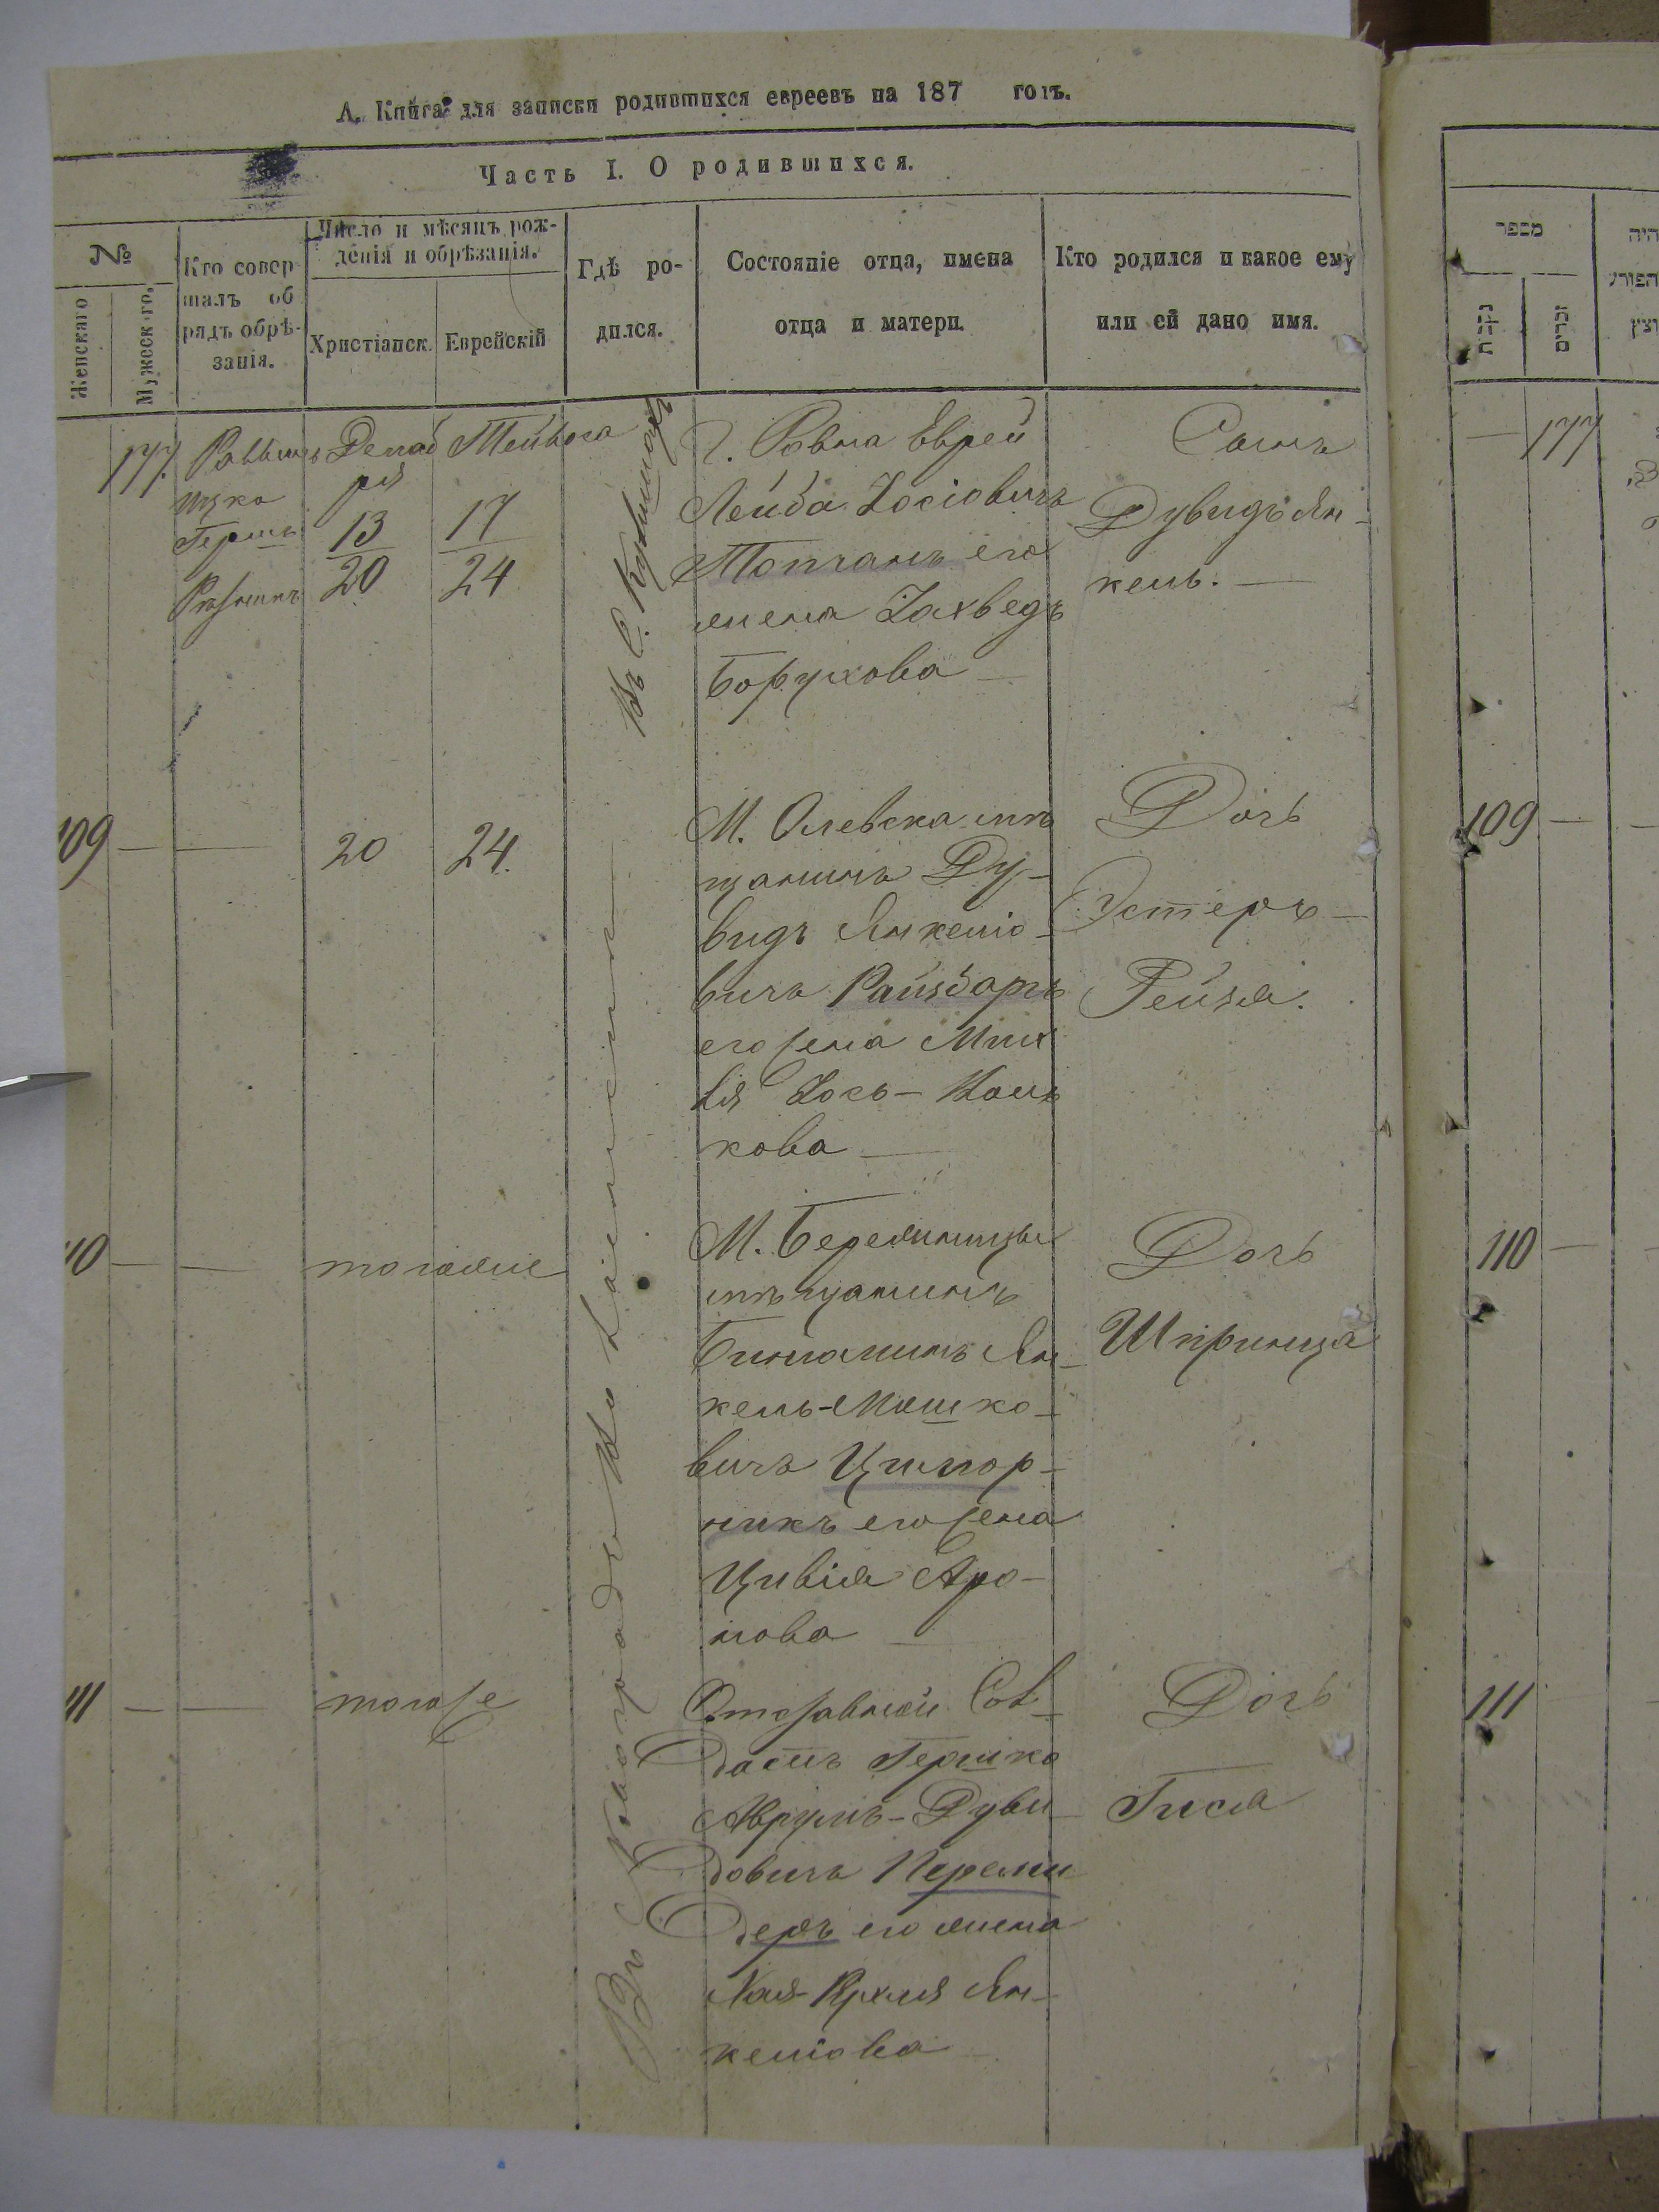 А. Книга для записки родившихся евреевъ на 187 годъ.
Часть I. О родившихся.
№
Женскаго
Мужеск го.
Кто совер
шалъ об
рядъ обрѣ-
занія.
Число и мѣсяцъ рож-
денія и обрѣзанія.
Христіанск.
Еврейскій
Гдѣ ро-
дился.
Состояніе отца, имена
отца и матери.
Кто родился и какое ему
или ей дано имя.
177
Раввинъ
Ицко
Гершъ
Декаб
ря
13
20
Тейвеса
17
24
Въ С.
Г. Ровна Еврей
Лейба Іосіовичъ
его
жена Іохведъ
Борухова
Сынъ
Дувидъ Ян-
кель.
109
20
24.
М. Олевска мѣ
щанинъ Ду-
видъ Янкеліо-
вичъ Райзбаргъ
его жена
Іось-
кова
Дочь
Эстеръ-
Рейзя.
110
тогоже
М.
мѣщанинъ
Биньяминъ Ян-
кель-Мошко-
вичъ Ципор-
никъ его жена
Цивія Аро-
нова
Дочь
Шпринца
111
тогоже
Отставной Сол
датъ Гершко
Аврумъ-Дуви
довичъ Перели
деръ его жена
Хая- Ян-
келіова
Дочь
Гися
מספר
נקבות
זכרים
היה
177
109
110
111